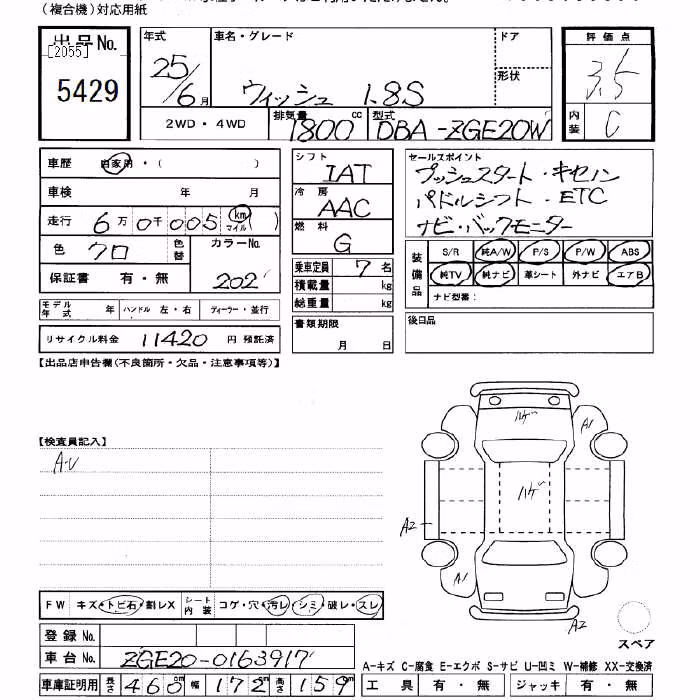 (複合機)対応用紙
出品No.
[2055]
5429
年式
25/6月
車名・グレード
ウィッシュ 1.8S
ドア
形状
2WD・4WD
排気量
1800cc
型式
DBA-ZGE20W
評価点
3.5
内装
C
車歴 自家用・( )
車検 年 月
走行 6万0千005 km マイル ( )
色 クロ 色替
カラーNo. 202
保証書 有・無
モデル年式 年 ハンドル 左・右 ディーラー・並行
リサイクル料金 11420 円 預託済
シフト
IAT
冷房
AAC
燃料
G
乗車定員 7名
積載量 kg
総重量 kg
書類期限
月 日
セールスポイント
プッシュスタート・キセノン
パドルシフト・ETC
ナビ・バックモニター
装備品
S/R 純A/W P/S P/W ABS
純TV 純ナビ 革シート 外ナビ エアB
ナビ型番:
後日品
【出品店申告欄(不良箇所・欠品・注意事項等)】
【検査員記入】
A-U
ハゲ
A1
ハゲ
A2
A1
A2
スペア
FW キズ・トビ石・割レX
シート内装 コゲ・穴・汚レ・シミ・破レ・スレ
登録No.
車台No. ZGE20-0163917
車庫証明用 長さ 460m 幅 172m 高さ 159m
A-キズ C-腐食 E-エクボ S-サビ U-凹ミ W-補修 XX-交換済
工具 有・無 ジャッキ 有・無